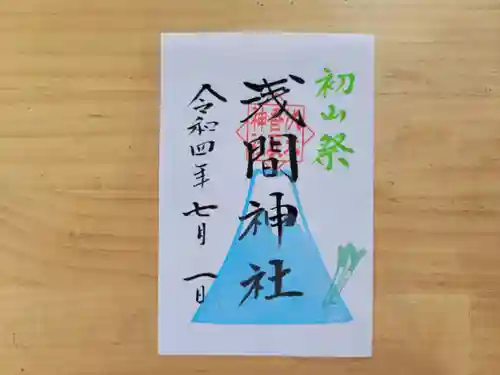 初山祭
浅間神社
令和四年七月一日